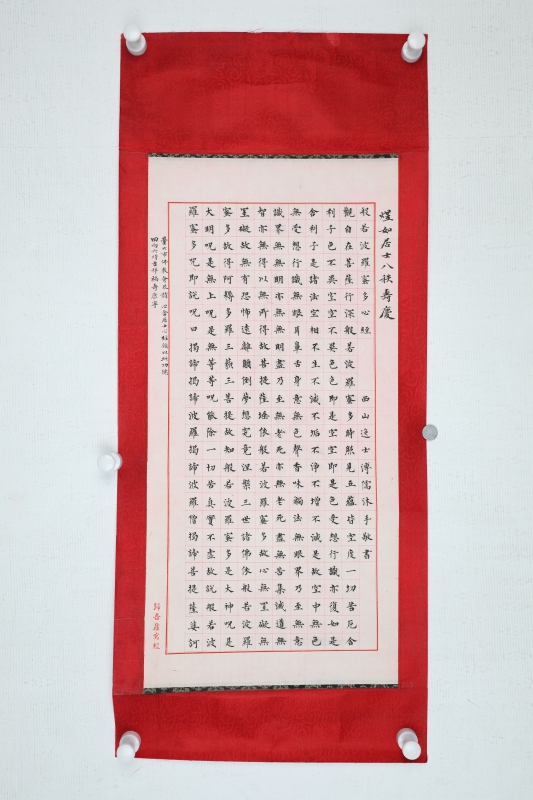 煜如居士八秩壽慶
般若波羅蜜多心經 西山逸士溥儒沐手敬書
觀自在菩薩行深般若波羅蜜多時照見五蘊皆空度一切苦厄舍
利子色不異空空不異色色即是空空即是色受想行識亦復如是
舍利子是諸法空相不生不滅不垢不淨不增不減是故空中無色
無受想行識無眼耳鼻舌身意無色聲香味觸法無眼界乃至無意
識界無無明亦無無明盡乃至無老死亦無老死盡無苦集滅道無
智亦無得以無所得故菩提薩埵依般若波羅蜜多故心無罣礙無
罣礙故無有恐怖遠離顛倒夢想究竟涅槃三世諸佛依般若波羅
蜜多故得阿耨多羅三藐三菩提故知般若波羅蜜多是大神呪是
大明呪是無上呪是無等等呪能除一切苦真實不虛故說般若波
羅蜜多呪即說呪曰揭諦揭諦波羅揭諦波羅僧揭諦菩提薩婆訶
臺北市佛教會恭請 心畬居士寫經願以此功德
回向六時吉祥福壽康寧
寫經